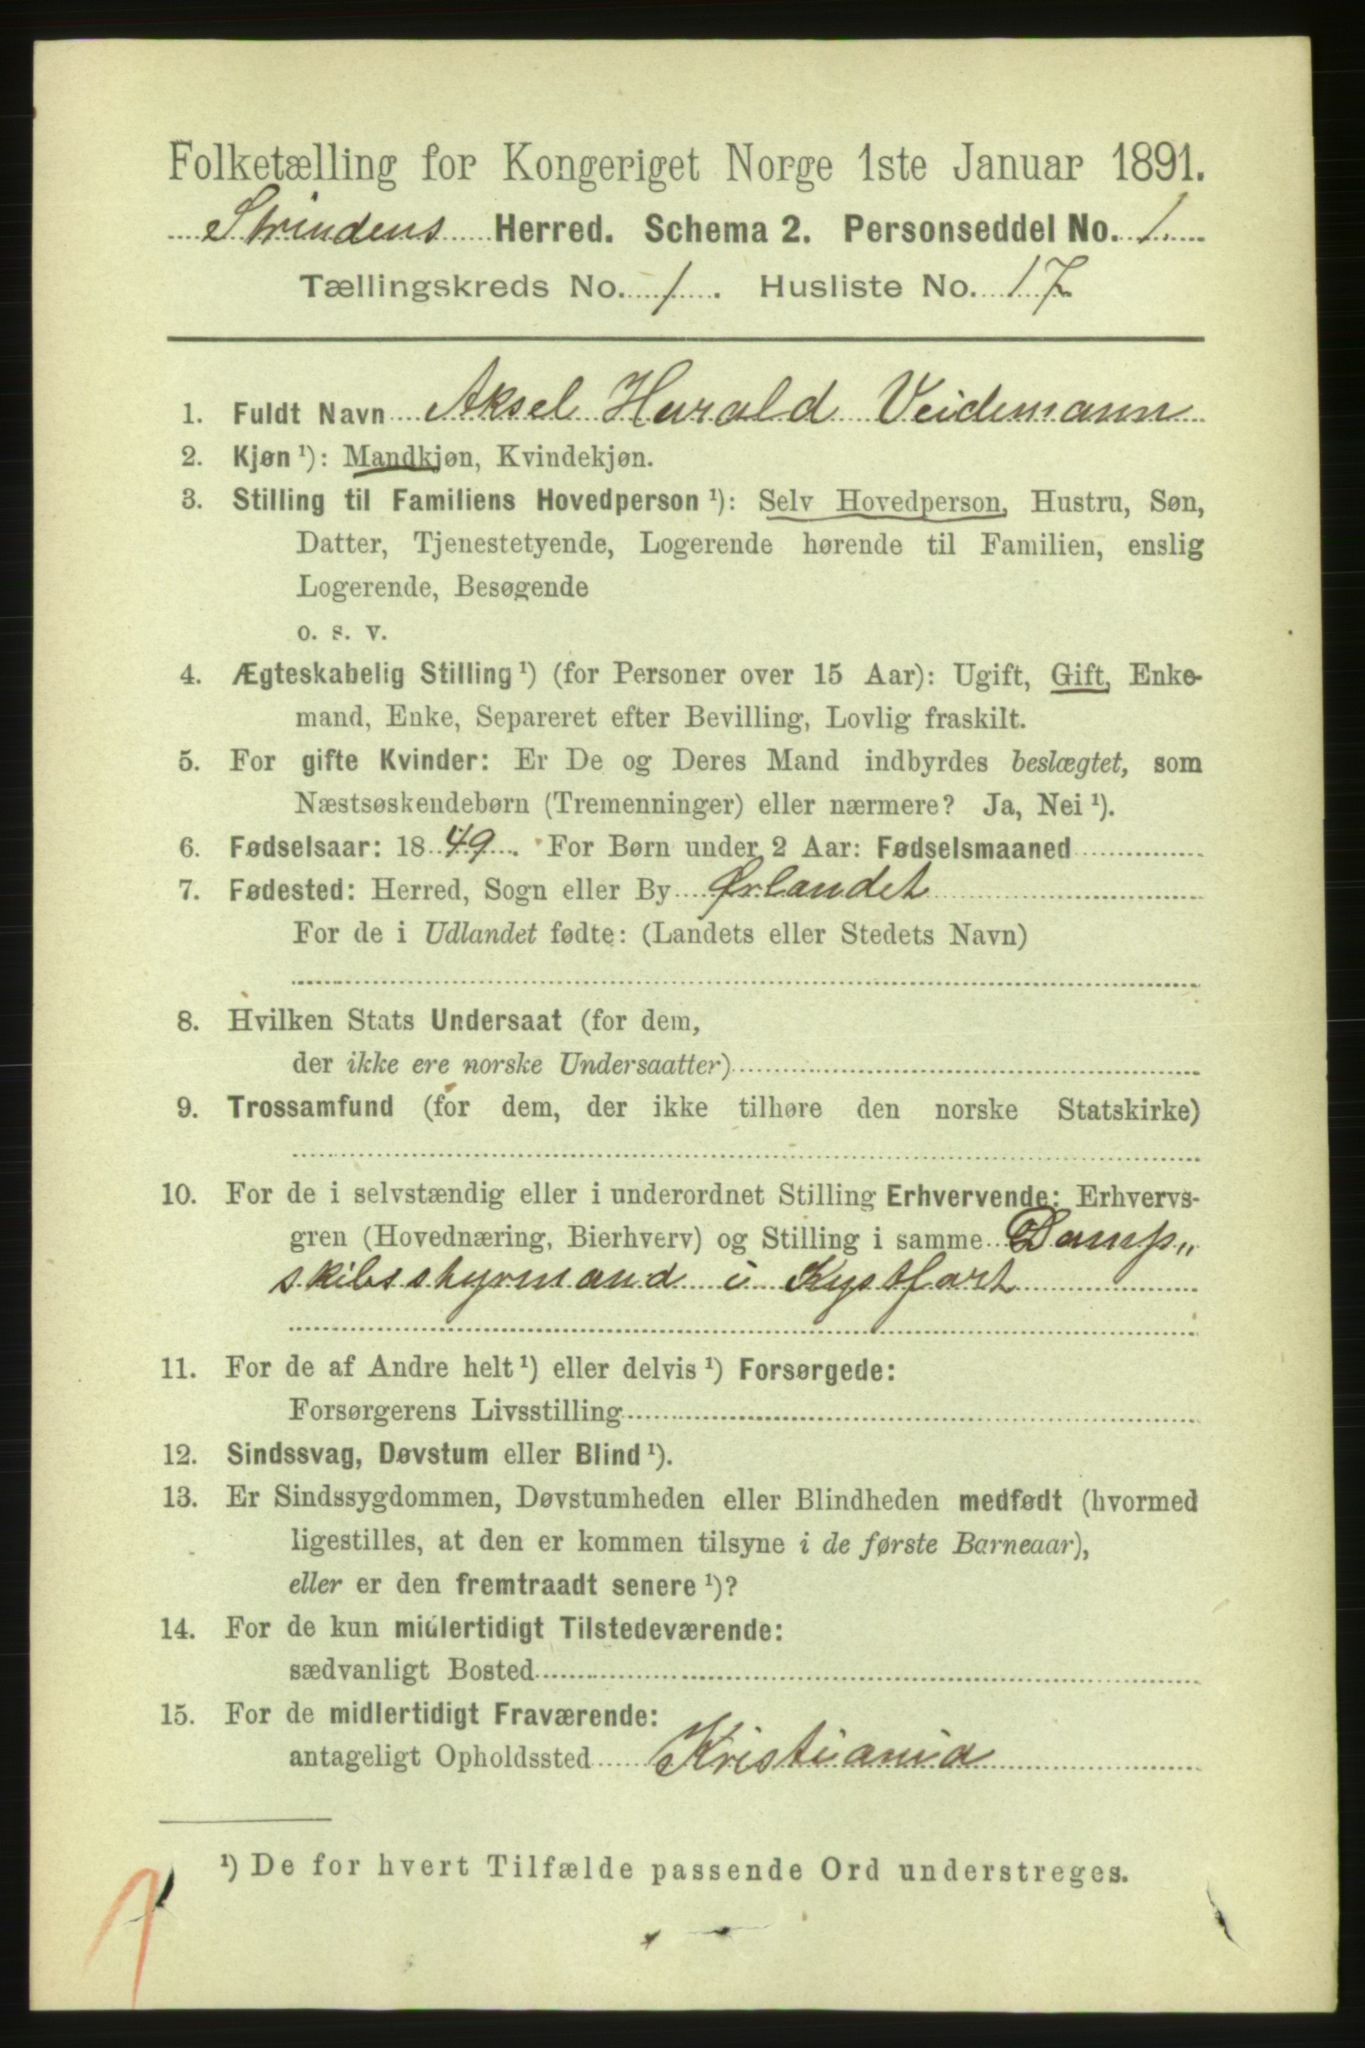 Folketælling for Kongeriget Norge 1ste Januar 1891.
Strindens Herred. Schema 2. Personseddel No. 1.
Tællingskreds No. 1. Husliste No. 17
1. Fuldt Navn Aksel Harald Veidemann
2. Kjøn ¹): Mandkjøn, Kvindekjøn.
3. Stilling til Familiens Hovedperson ¹): Selv Hovedperson, Hustru, Søn,
Datter, Tjenestetyende, Logerende hørende til Familien, enslig
Logerende, Besøgende
o. s. v.
4. Ægteskabelig Stilling ¹) (for Personer over 15 Aar): Ugift, Gift, Enke-
mand, Enke, Separeret efter Bevilling, Lovlig fraskilt.
5. For gifte Kvinder: Er De og Deres Mand indbyrdes beslægtet, som
Næstsøskendebørn (Tremenninger) eller nærmere? Ja, Nei ¹).
6. Fødselsaar: 1849. For Børn under 2 Aar: Fødselsmaaned
7. Fødested: Herred, Sogn eller By Ørlandet
For de i Udlandet fødte: (Landets eller Stedets Navn)
8. Hvilken Stats Undersaat (for dem,
der ikke ere norske Undersaatter)
9. Trossamfund (for dem, der ikke tilhøre den norske Statskirke)
10. For de i selvstændig eller i underordnet Stilling Erhvervende: Erhvervs-
gren (Hovednæring, Bierhverv) og Stilling i samme Damp„
skibsstyrmand i Kystfart
11. For de af Andre helt ¹) eller delvis ¹) Forsørgede:
Forsørgerens Livsstilling
12. Sindssvag, Døvstum eller Blind ¹).
13. Er Sindssygdommen, Døvstumheden eller Blindheden medfødt (hvormed
ligestilles, at den er kommen tilsyne i de første Barneaar),
eller er den fremtraadt senere ¹)?
14. For de kun midlertidigt Tilstedeværende:
sædvanligt Bosted
15. For de midlertidigt Fraværende:
antageligt Opholdssted Kristiania
¹) De for hvert Tilfælde passende Ord understreges.